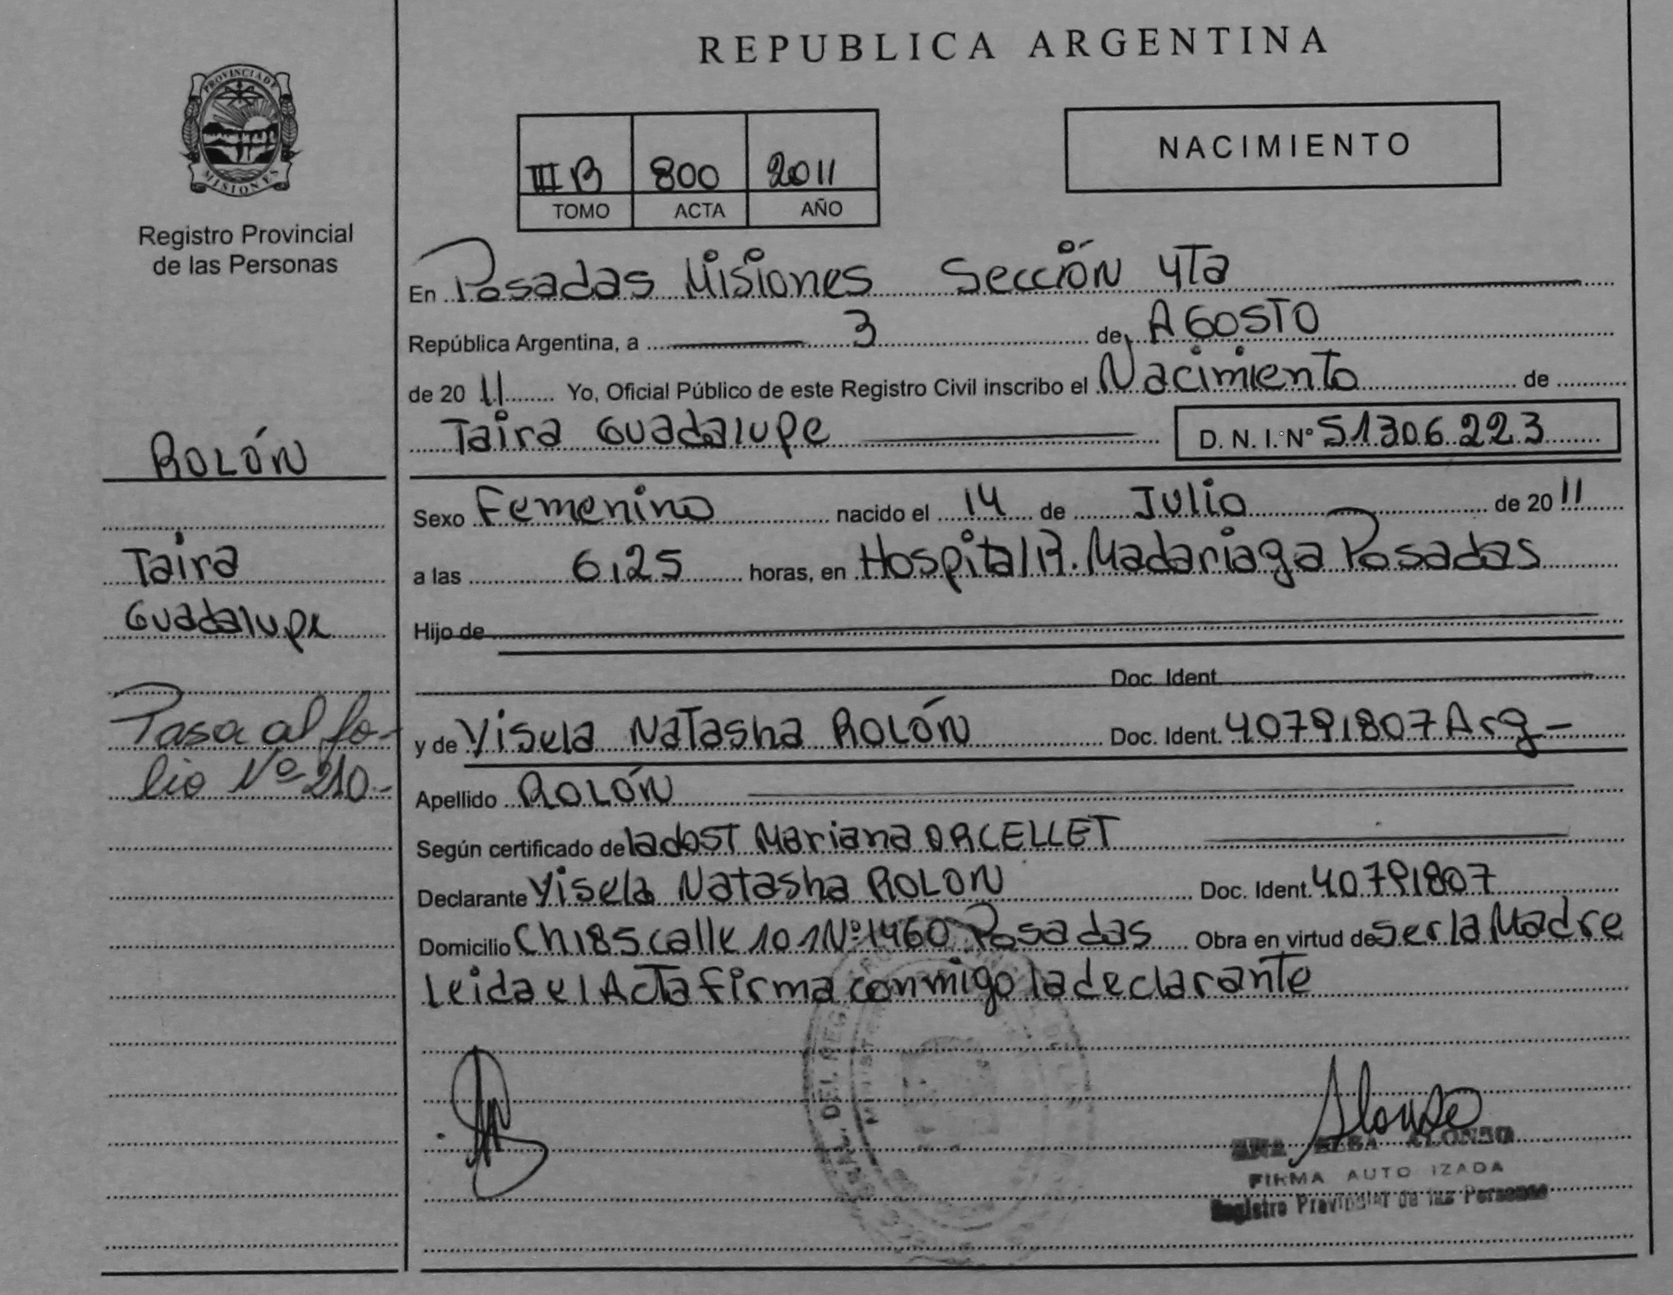 REPUBLICA ARGENTINA
PROVINCIA DE
MISIONES
Registro Provincial
de las Personas
III B 800 2011
TOMO ACTA AÑO
NACIMIENTO
En Posadas Misiones Sección 4Ta
República Argentina, a 3 de AGOSTO
de 20 11 Yo, Oficial Público de este Registro Civil inscribo el Nacimiento de
Taira Guadalupe D. N. I. Nº 51.306.223
ROLÓN
Taira
Guadalupe
Pasa al fo-
lio Nº 210.-
Sexo Femenino nacido el 14 de Julio de 20 11
a las 6,25 horas, en Hospital R. Madariaga Posadas
Hijo de
Doc. Ident.
y de Yisela Natasha ROLÓN Doc. Ident. 40791807 Arg-
Apellido ROLÓN
Según certificado de la dost Mariana ORCELLET
Declarante Yisela Natasha ROLON Doc. Ident. 40791807
Domicilio Ch185 calle 101 Nº 1460 Posadas Obra en virtud de ser la Madre
Leida el Acta firma conmigo la declarante
Alonso
ANA ELBA ALONSO
FIRMA AUTO IZADA
Registro Provincial de las Personas